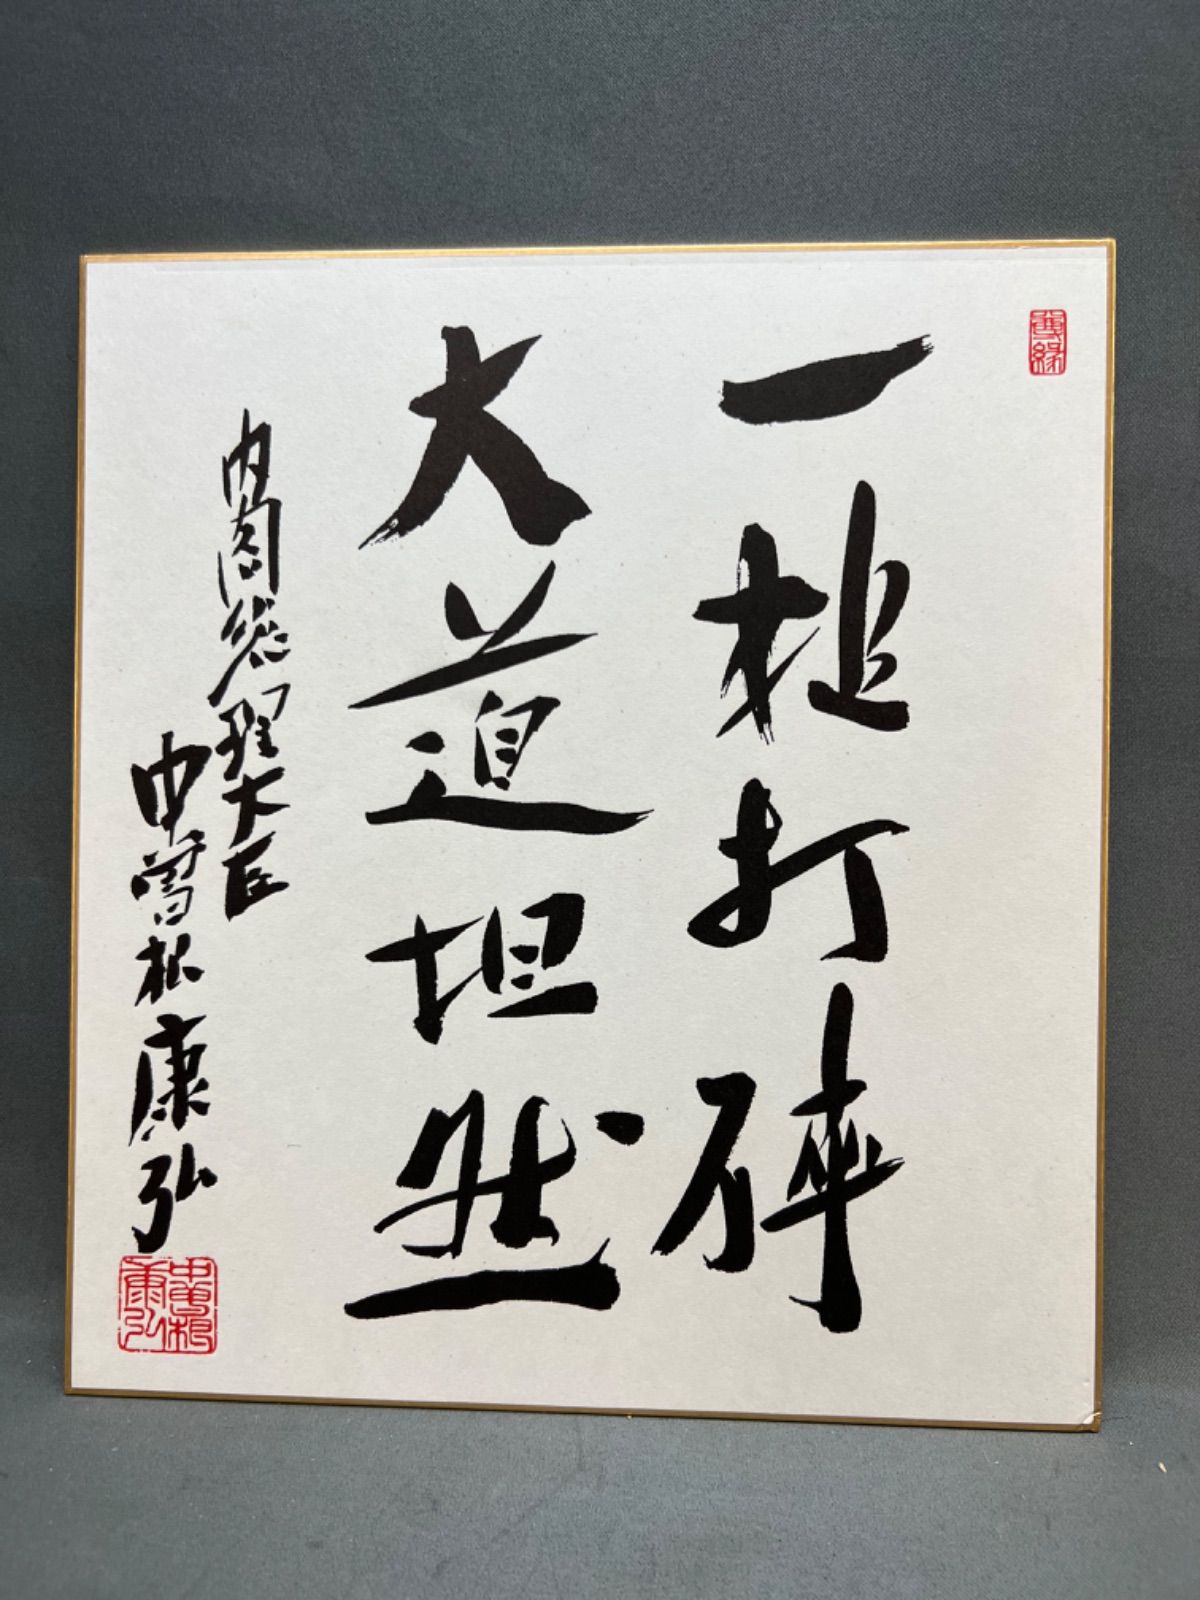 一槌打砕
大道坦然
内閣総理大臣
中曽根康弘
中曽根
康弘